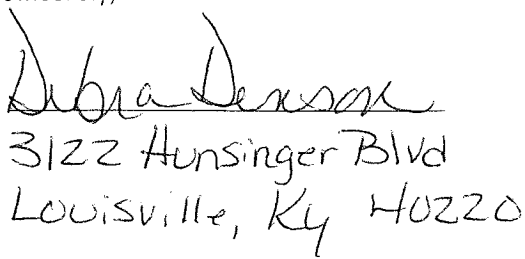 Debra Denson
3122 Hunsinger Blvd
Louisville, Ky 40220